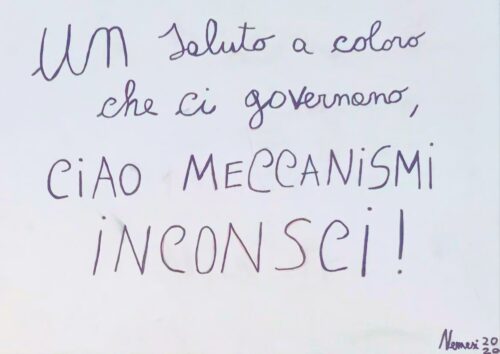 Un saluto a coloro
che ci governano,
CiAO MECCANiSMi
iNCONSCi!
Nemesi 20
20